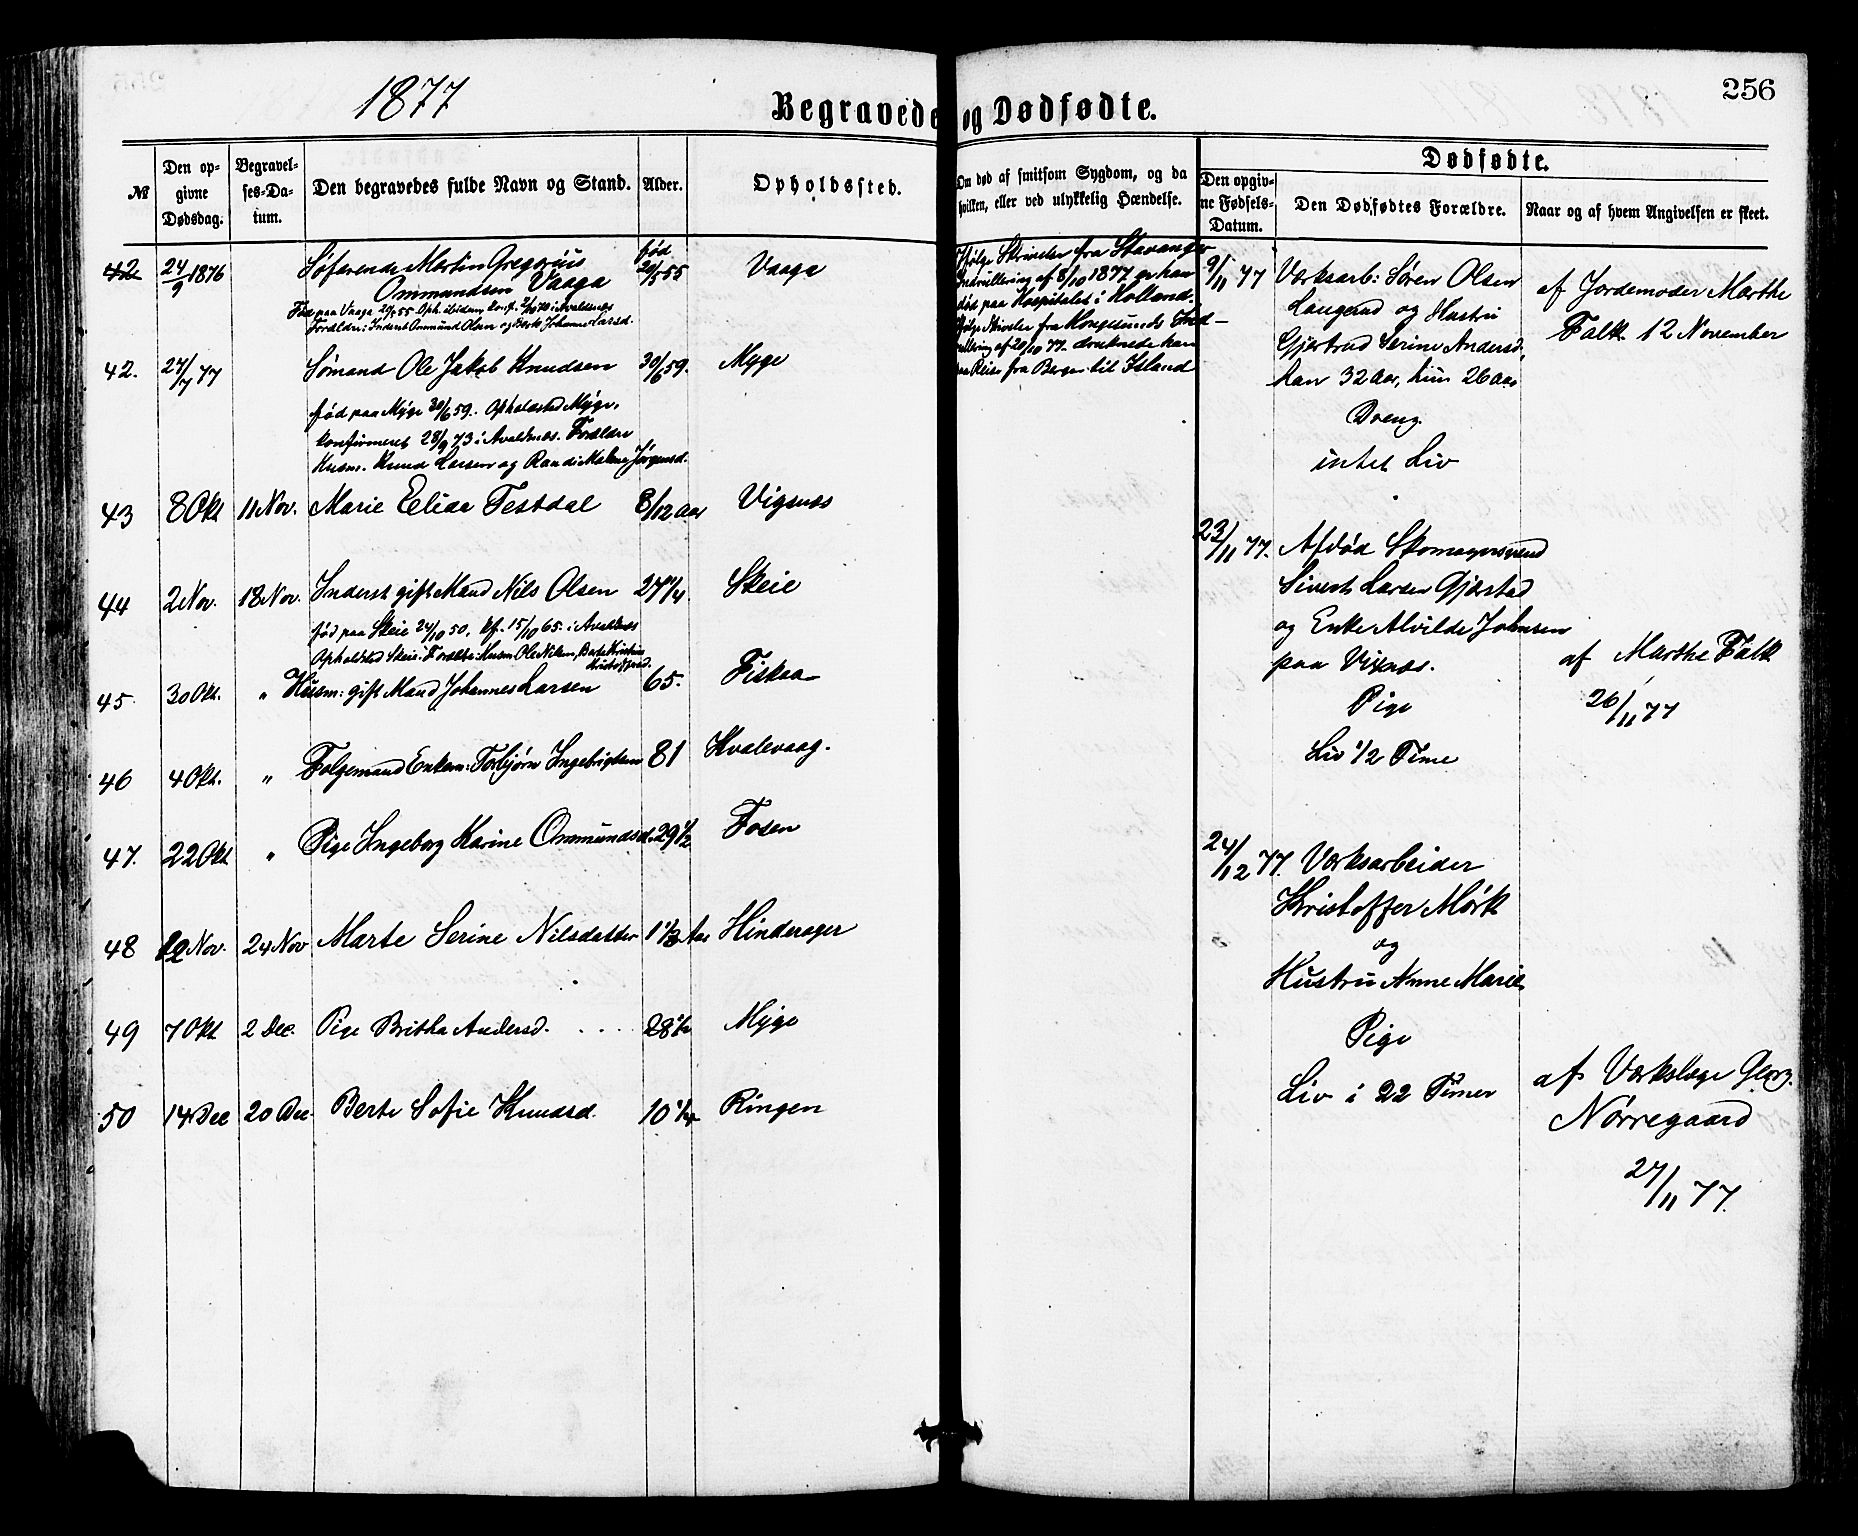 1877
Begravede og Dødfødte.
256
№
Den op-
givne
Dødsdag.
Begravel-
ses-Da-
tum.
Den begravedes fulde Navn og Stand.
Alder.
Opholdssted.
Om død af smitsom Sygdom, og da
hvilken, eller ved ulykkelig Hændelse.
Dødfødte.
Den opgiv-
ne Fødsels-
Datum.
Den Dødfødtes Forældre.
Naar og af hvem Angivelsen er skeet.
42 24/9 1876 Søfarende Martin Gregorius født 29/5 55 Vaage
Ommundsen Vaaga
Født paa Vaage 29/5 55 Oph. ibidem, konf. i Avaldsnes
Forældre: Inderst Ommund Olsen og Berte Johanne Larsd.
Ifølge Skrivelse fra Stavanger
Indrullering af 8/10 1877 er han
død paa Hospitalet i Holland.
42. 24/7 77 Sømand Ole Jakob Knudsen 30/6 59. Myge
født paa Myge 30/6 59. Opholdsted Myge,
konfirmeret 28/9 73 i Avaldsnæs. Forældre
Husm. Knud Larsen og Randi Malene Jørgensd.
Ifølge Skrivelse fra Haugesunds Ind-
rullering af 20/10 77 druknede han
paa Reise fra Bergen til Island
43 8 Okt 11 Nov. Marie Testdal 8/12 aar Vigsnæs
44 2 Nov. 18 Nov. Inderst gift Mand Nils Olsen 27 Skeie
født paa Skeie 24/10 50, kf. 15/10 65 i Avaldsnes
Opholdsted Skeie. Forældre: Husm. Ole Nilsen, Berte Kristine
Kristoffersd.
45 30 Okt. " Husm: gift Mand Johannes Larsen 65. Fiskaa
46 4 Okt. " Folgemand Enkem: Torbjørn Ingebrigtsen 81 Kvalevaag.
47. 22 Okt " Pige Ingeborg Karine Ommundsd. 29 1/2 Fosen
48 Nov. 24 Nov Marte Serine Nilsdatter 1 1/3 Aar Hinderager
49 7 Okt 2 Dec. Pige Britha Andersd. . . . . 28 1/2 Myge
50 14 Dec 20 Dec. Berte Sofie Knudsd. 10 1/4 Ringen
9/11 77 Værksarb: Søren Olsen
Haugand og Hustru
Gjertrud Serine Andersd,
han 32 Aar, hun 26 Aar
Dreng.
intet Liv
af Jordemoder Marthe
Falk 12 November
23/11 77. Afdød Skomagersvend
Sivert Larsen Gjærstad
og Enke Alvilde Johnsen
paa Vixnæs.
Pige
Liv 1/2 Time
af Marthe Falk
26/11 77
24/12 77. Værksarbeider
Kristoffer Mørk
og
Hustru Anne Marie
Pige
Liv i 22 Timer
af Værkslæge Georg.
Nørregaard
27/11 77.